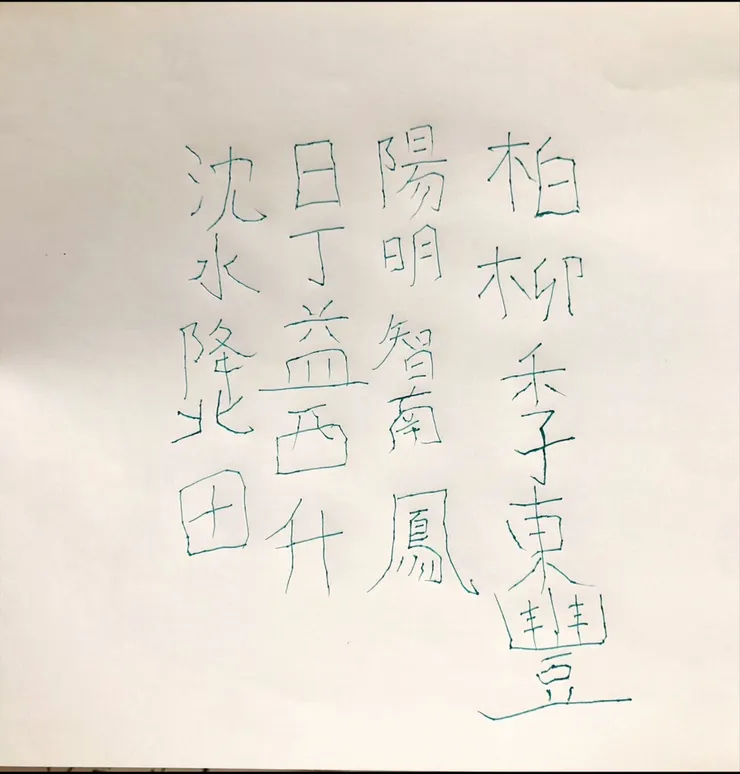 柏柳季東豐
陽明智南鳳
日丁益西升
沈水降北田